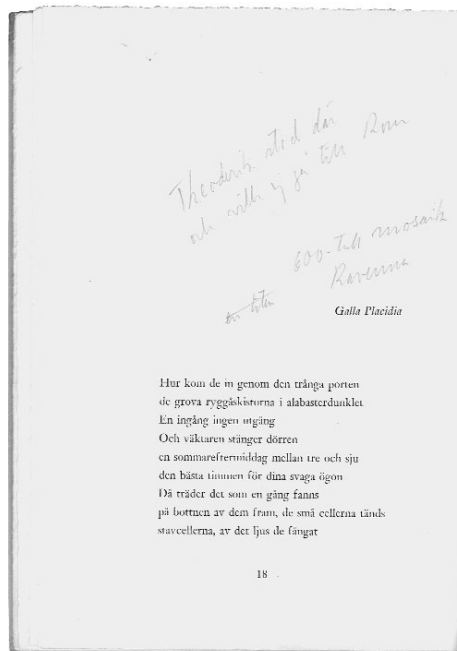 Theoderik stod där
och ville ej gå till Rom
600-tall mosaik
Ravenna
Galla Placidia
Hur kom de in genom den trånga porten
de grova ryggåskistorna i alabasterdunklet
En ingång ingen utgång
Och väktaren stänger dörren
en sommareftermiddag mellan tre och sju
den bästa timmen för dina svaga ögon
Då träder det som en gång fanns
på bottnen av dem fram, de små cellerna tänds
stavcellerna, av det ljus de fångat
18